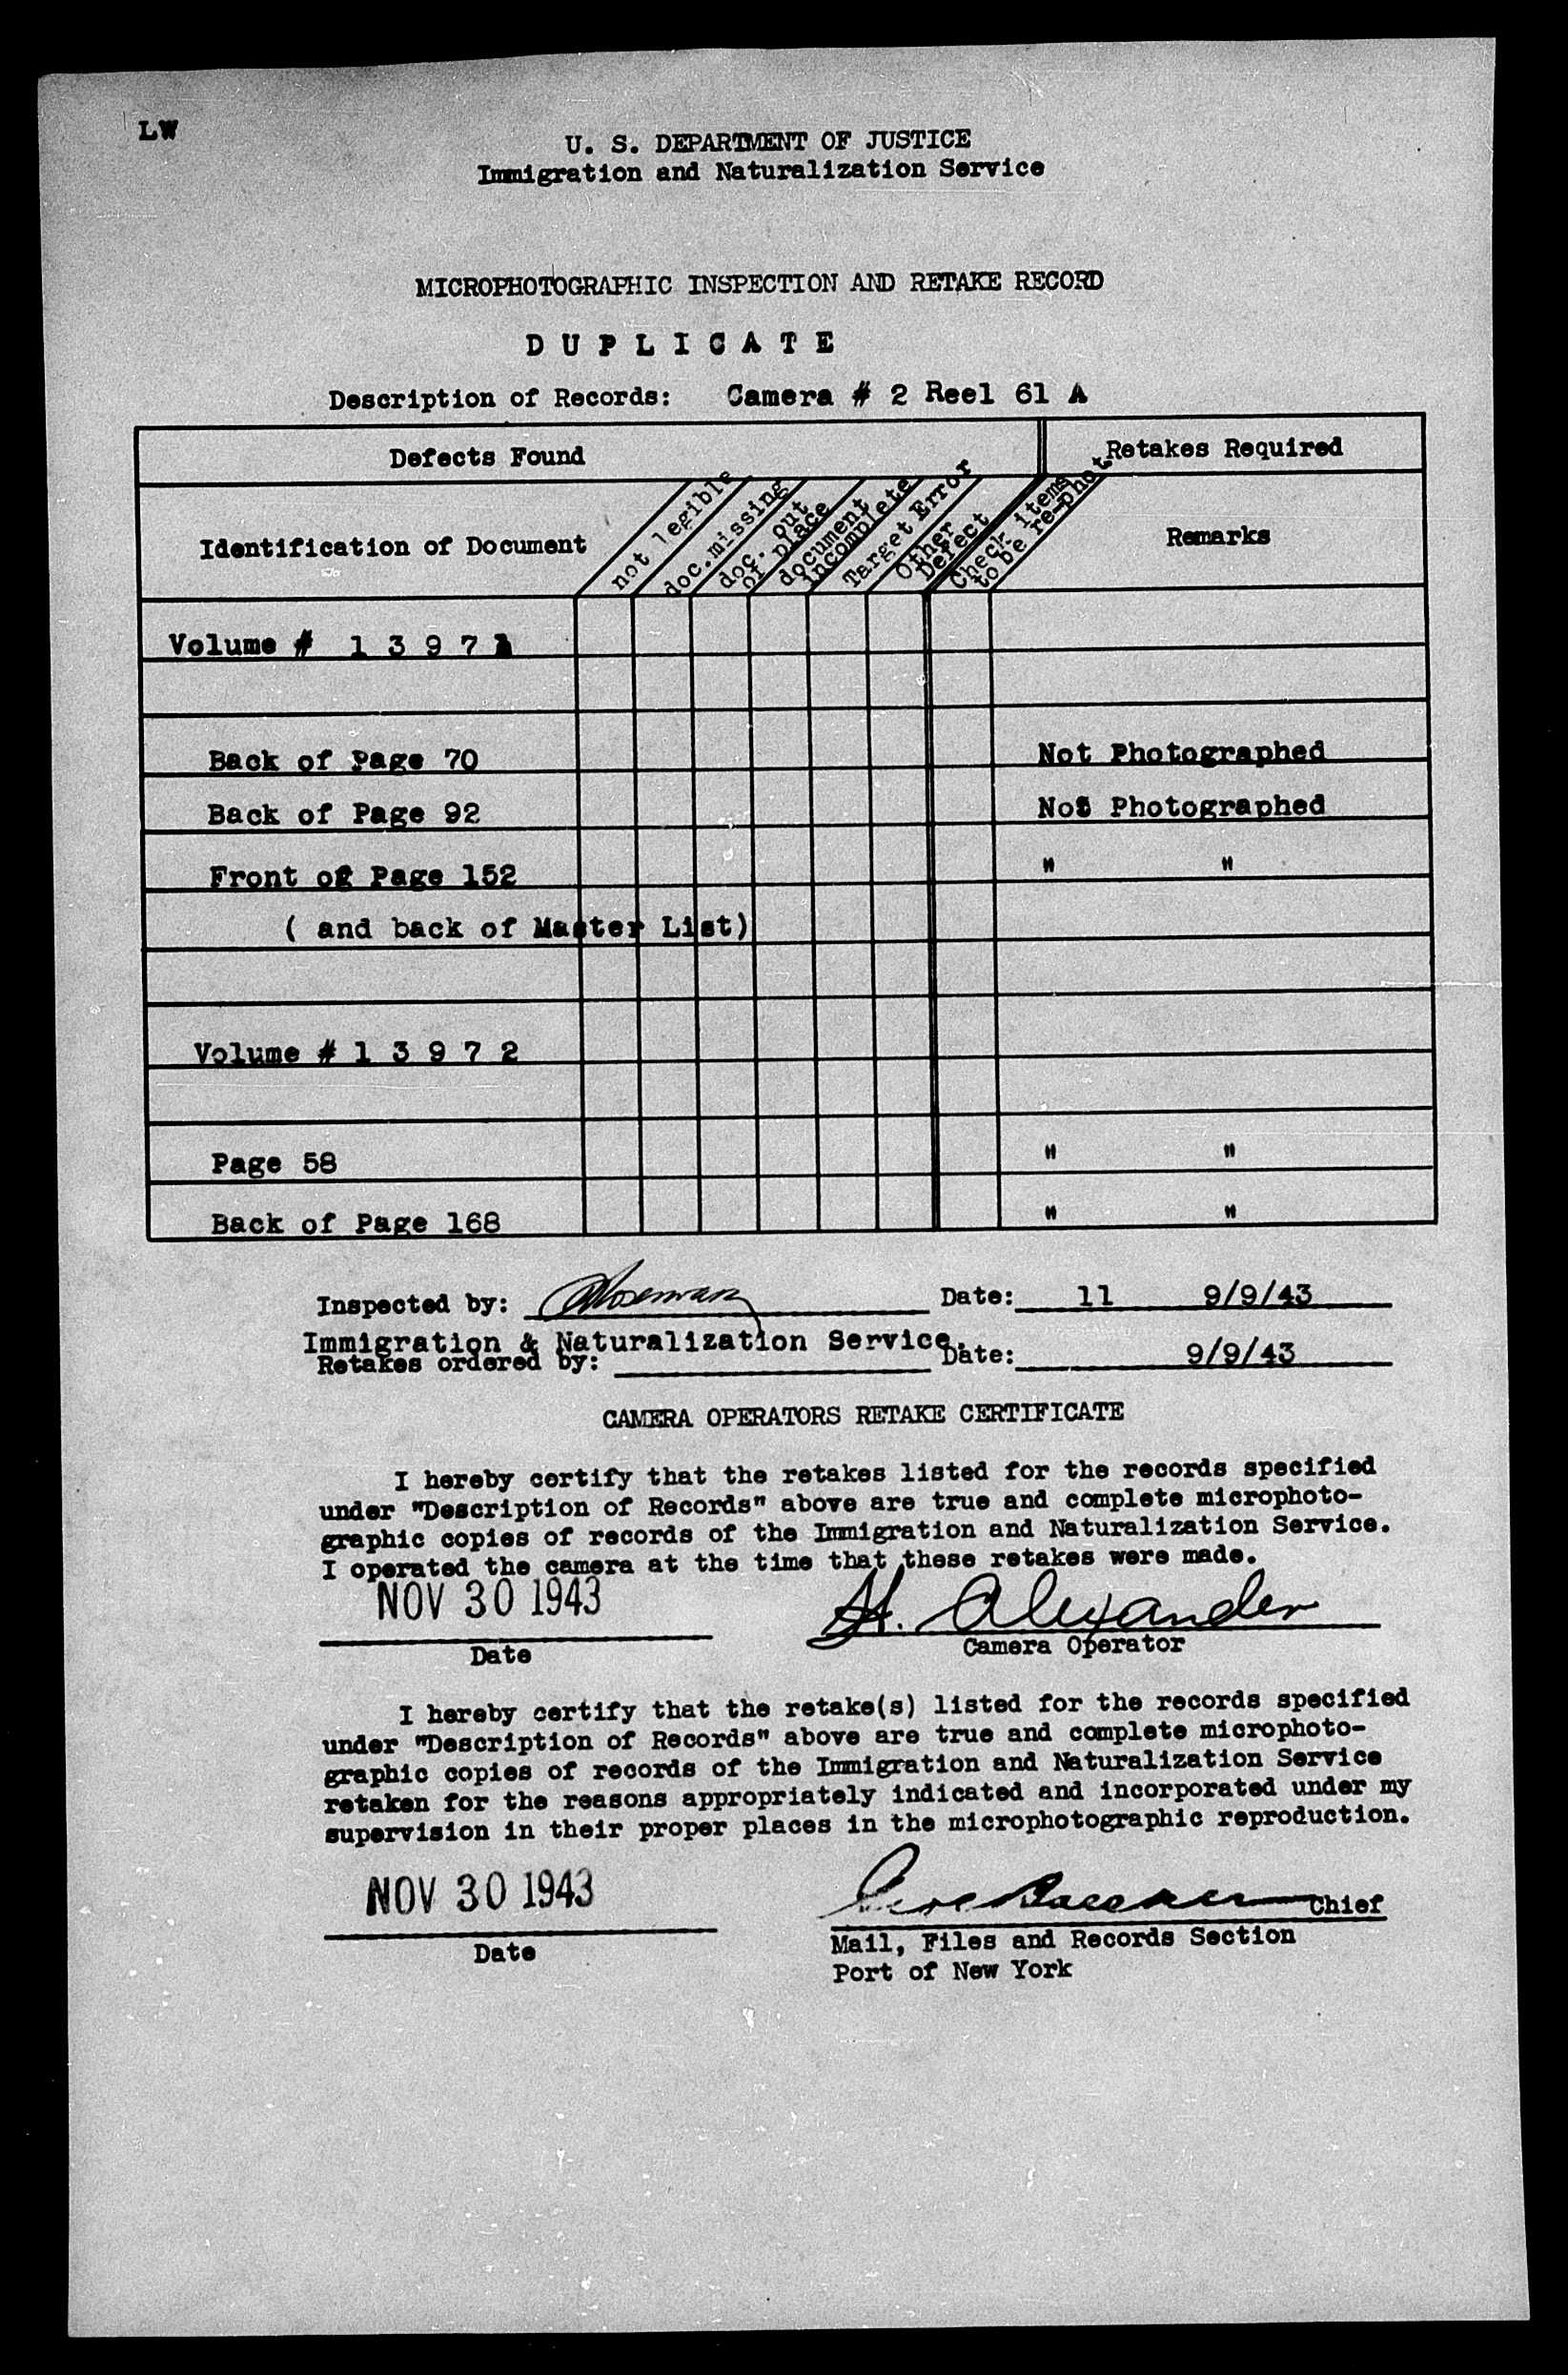 LW
U. S. DEPARTMENT OF JUSTICE
Immigration and Naturalization Service
MICROPHOTOGRAPHIC INSPECTION AND RETAKE RECORD
D U P L I C A T E
Description of Records: Camera # 2 Reel 61 A
Defects Found
Retakes Required
Identification of Document
not legible
doc.missing
doc. out
of place
document
incomplete
Target Error
Other
Defect
Check items
to be re-phot
Remarks
Volume # 1 3 9 7 1
Back of Page 70 Not Photographed
Back of Page 92 Not Photographed
Front of Page 152 " "
( and back of Master List)
Volume # 1 3 9 7 2
Page 58 " "
Back of Page 168 " "
Inspected by: Date: 11 9/9/43
Immigration & Naturalization Service.
Retakes ordered by: Date: 9/9/43
CAMERA OPERATORS RETAKE CERTIFICATE
I hereby certify that the retakes listed for the records specified
under "Description of Records" above are true and complete microphoto-
graphic copies of records of the Immigration and Naturalization Service.
I operated the camera at the time that these retakes were made.
NOV 30 1943 H. Alexander
Date Camera Operator
I hereby certify that the retake(s) listed for the records specified
under "Description of Records" above are true and complete microphoto-
graphic copies of records of the Immigration and Naturalization Service
retaken for the reasons appropriately indicated and incorporated under my
supervision in their proper places in the microphotographic reproduction.
NOV 30 1943 Chief
Date Mail, Files and Records Section
Port of New York